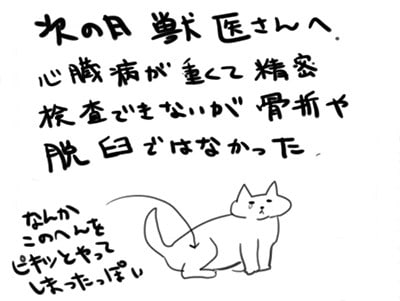 次の日 獣医さんへ
心臓病が重くて精密
検査できないが骨折や
脱臼ではなかった
なんか
このへんを
ピキッとやって
しまったっぽい